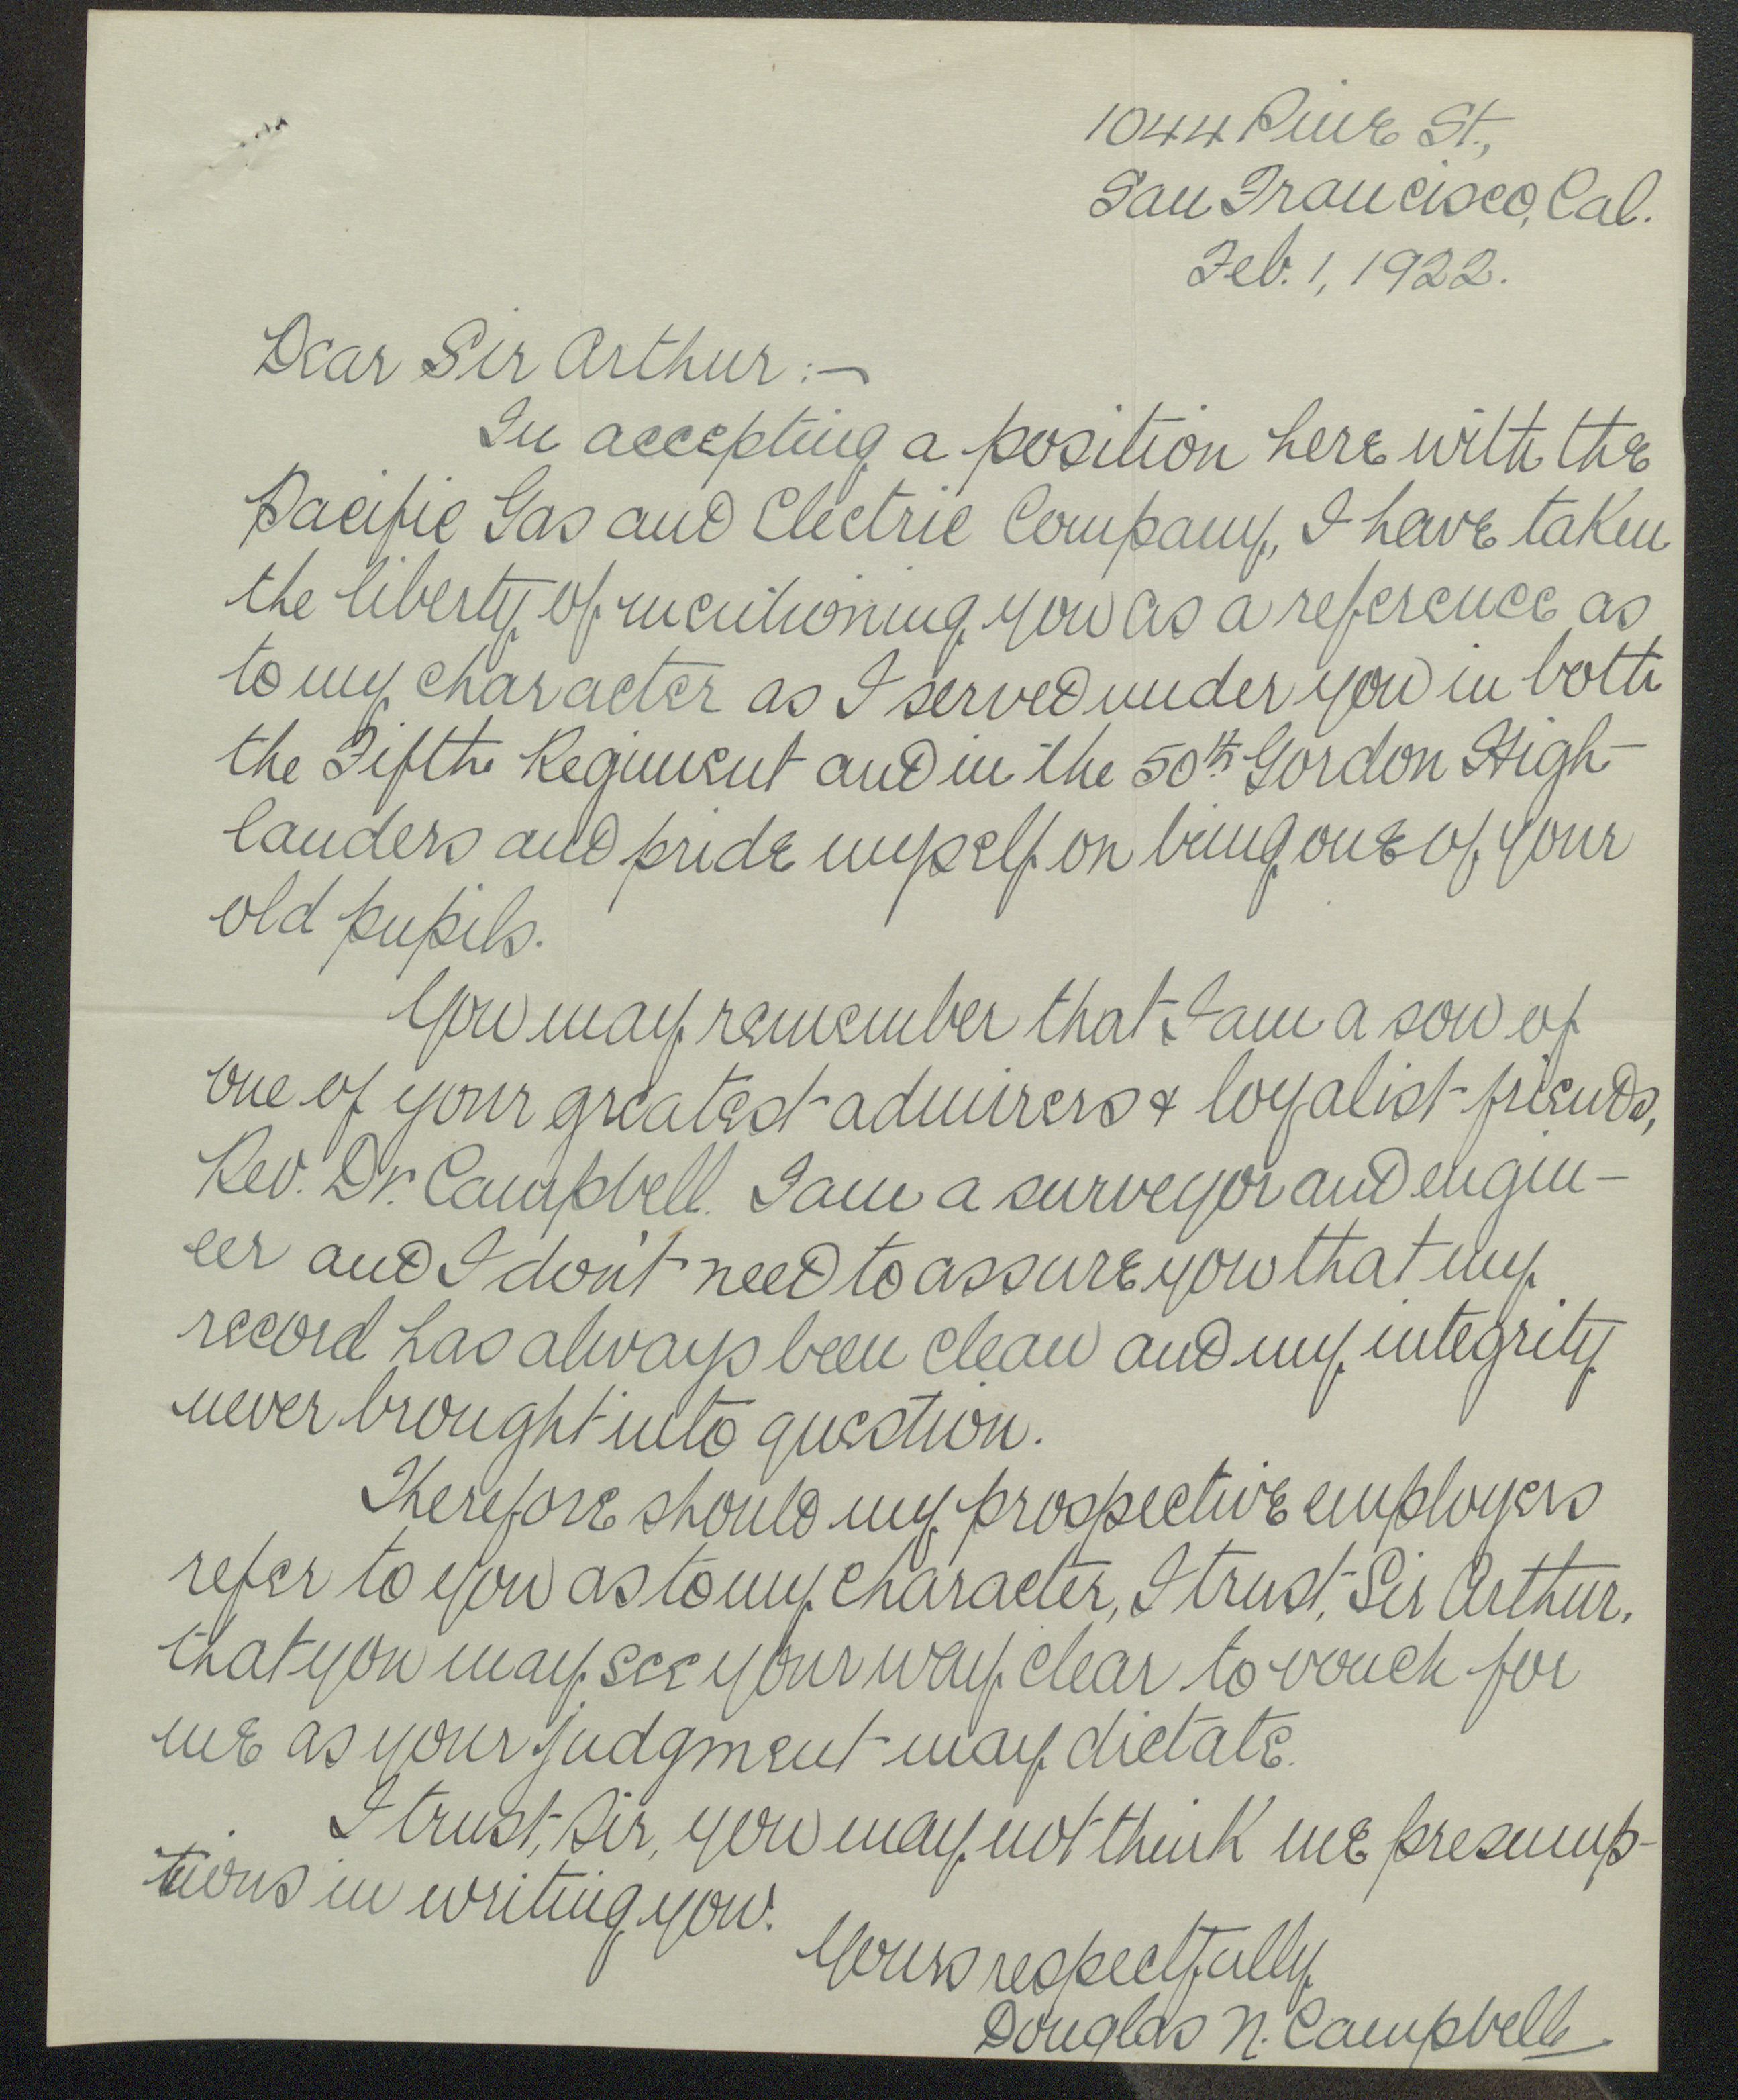 1044 Pine St.,
San Francisco, Cal.
Feb. 1, 1922.
Dear Sir Arthur:-
In accepting a position here with the
Pacific Gas and Electric Company, I have taken
the liberty of mentioning you as a reference as
to my character as I served under you in both
the Fifth Regiment and in the 50th Gordon High-
landers and pride myself on being one of your
old pupils.
You may remember that I am a son of
one of your greatest admirers & loyalist friends,
Rev. Dr. Campbell. I am a surveyor and engin-
eer and I don't need to assure you that my
record has always been clean and my integrity
never brought into question.
Therefore should my prospective employers
refer to you as to my character, I trust, Sir Arthur,
that you may see your way clear to vouch for
me as your judgment may dictate.
I trust, Sir, you may not think me presump-
tious in writing you.
Yours respectfully
Douglas N. Campbell